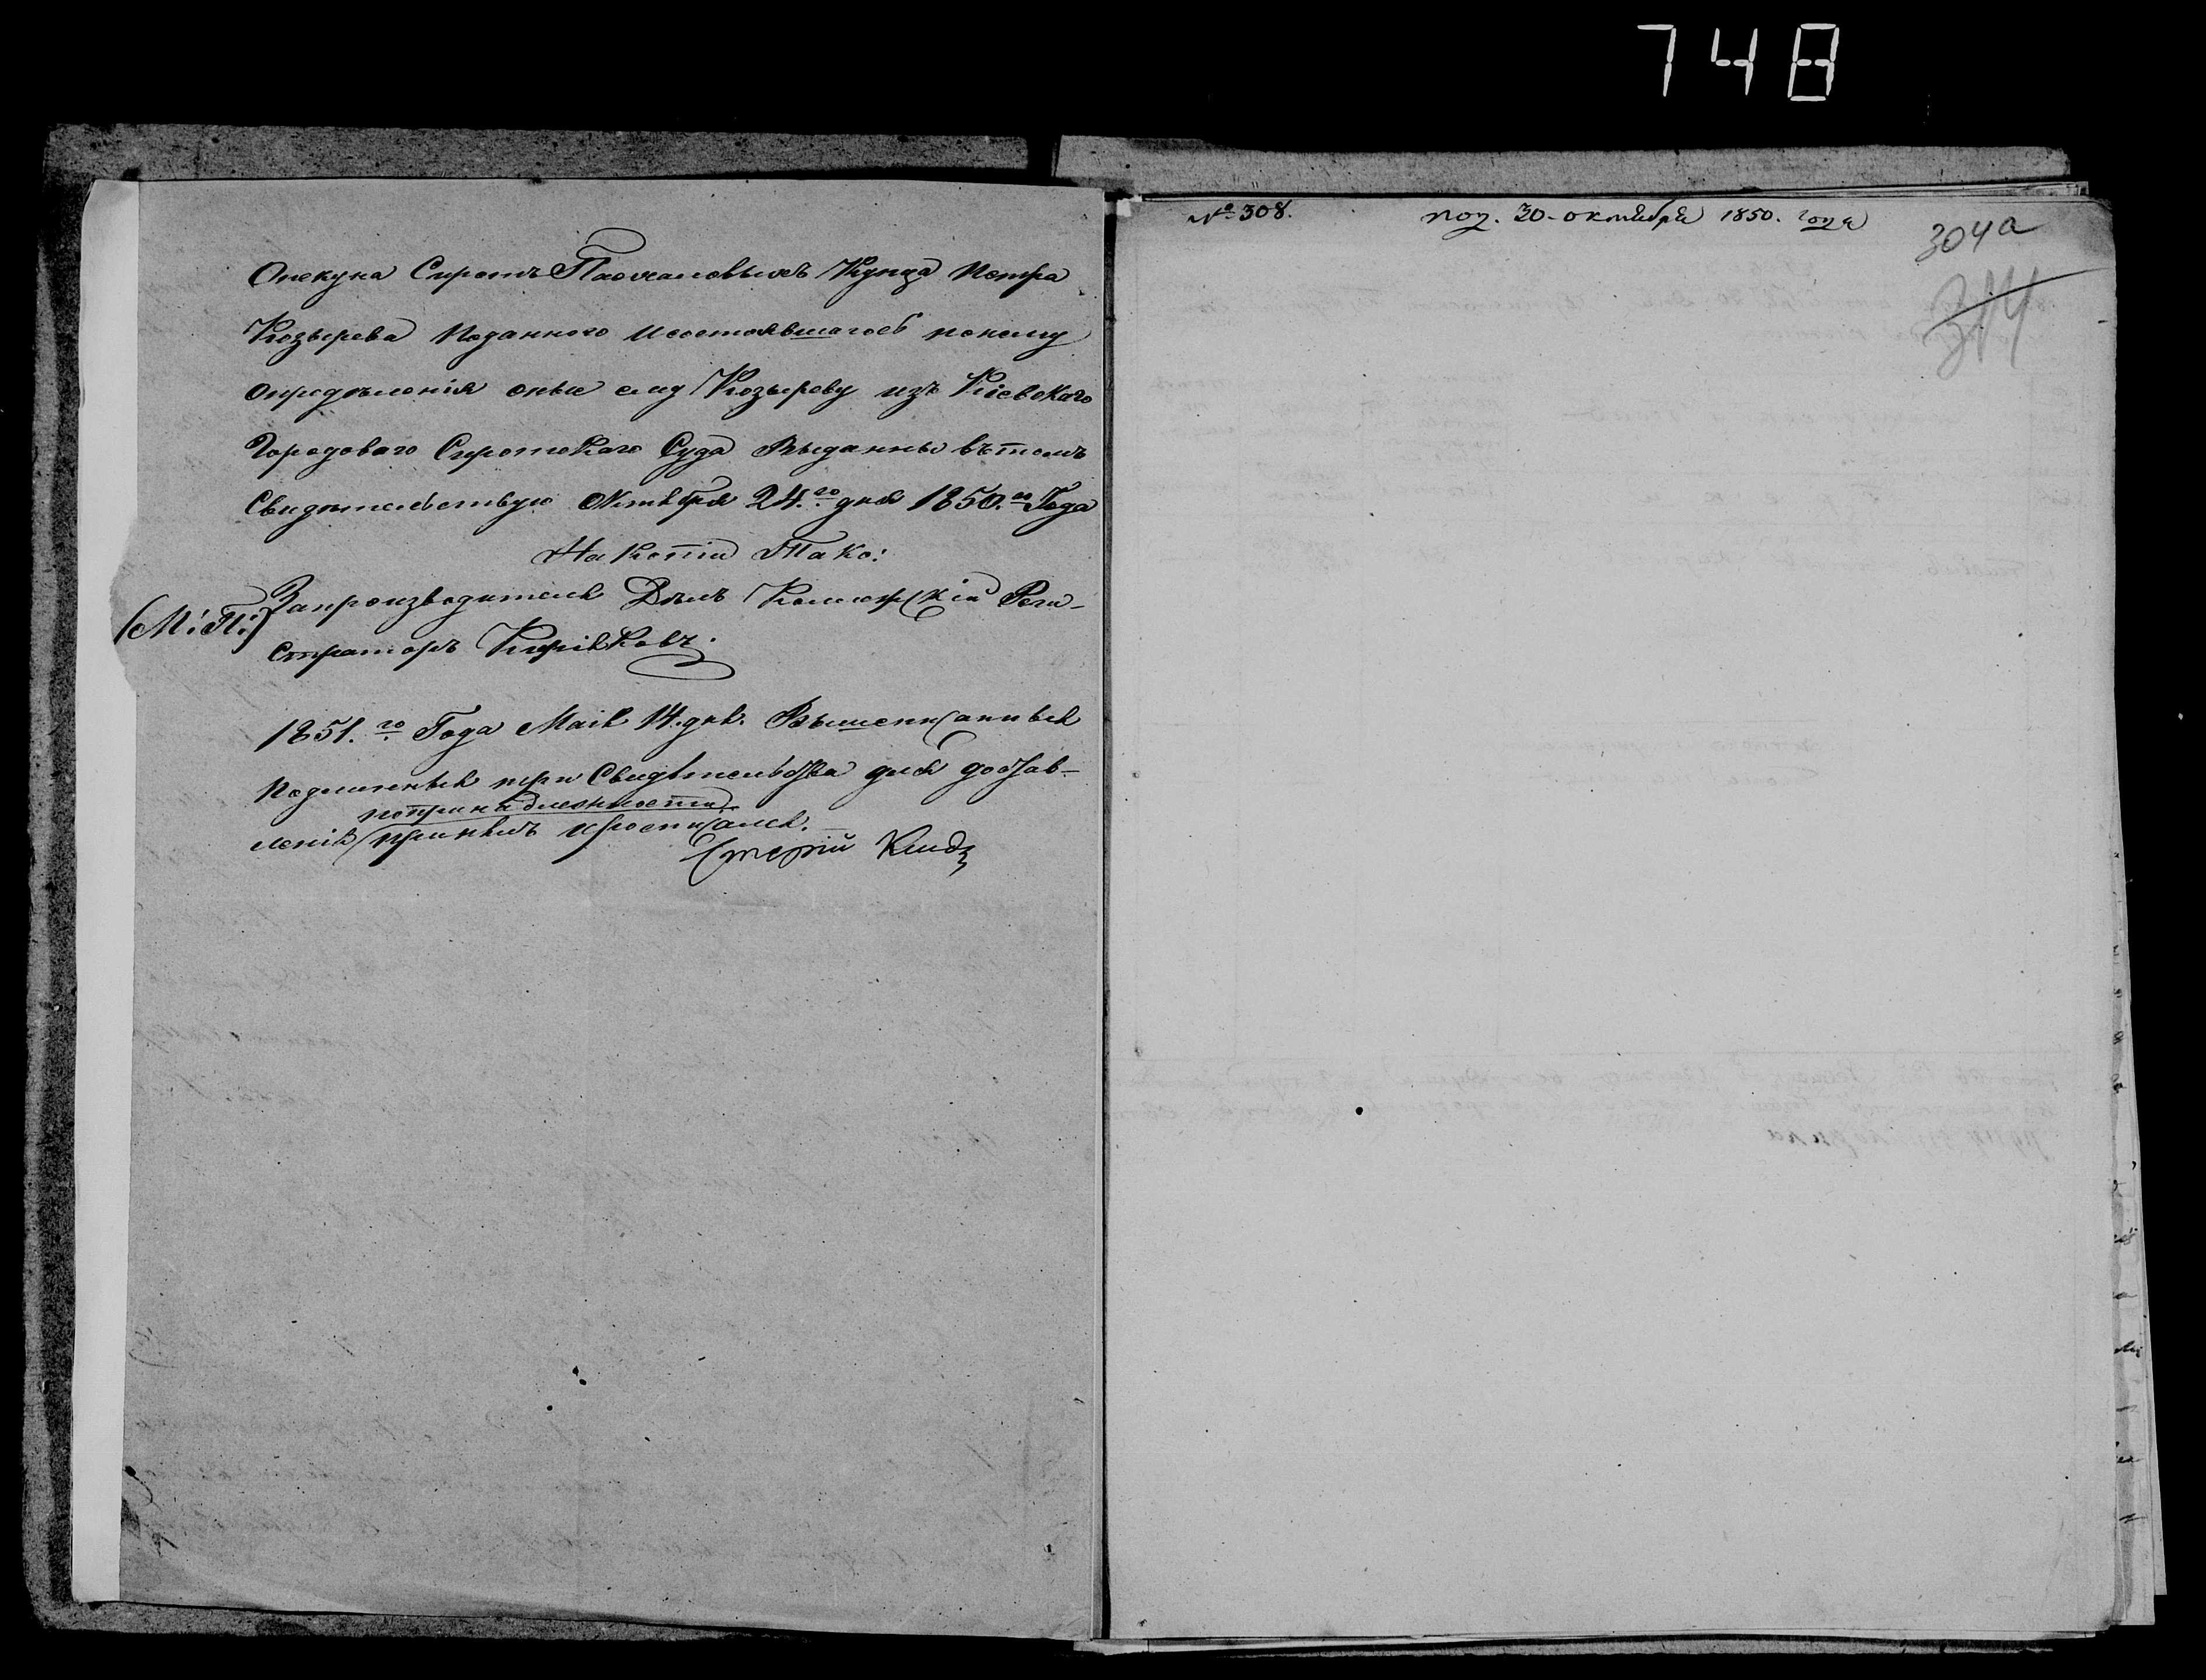 748
Опекуна Сиротъ Пасхаловыхъ Купца Петра
Козырева поданного исостоявшагося покаму
опредѣленія оные ему Козыреву изъ Кіевскаго
Городоваго Сиротскаго Суда выданны вътомъ
Свидѣтельствую Октября 24.го дня 1850.го Года
На Копіи Тако:
(М: П:) Запроизводителя Дѣлъ Коллежскій Реги-
страторъ
1851.го Года Маія 14. дня. Вышеписанныя
подлинныя три Свидѣтельства для доставле-
попринадлежности
ленія принялъ иросписался.
№ 308.
пол. 30 - октября 1850. года
304а
314